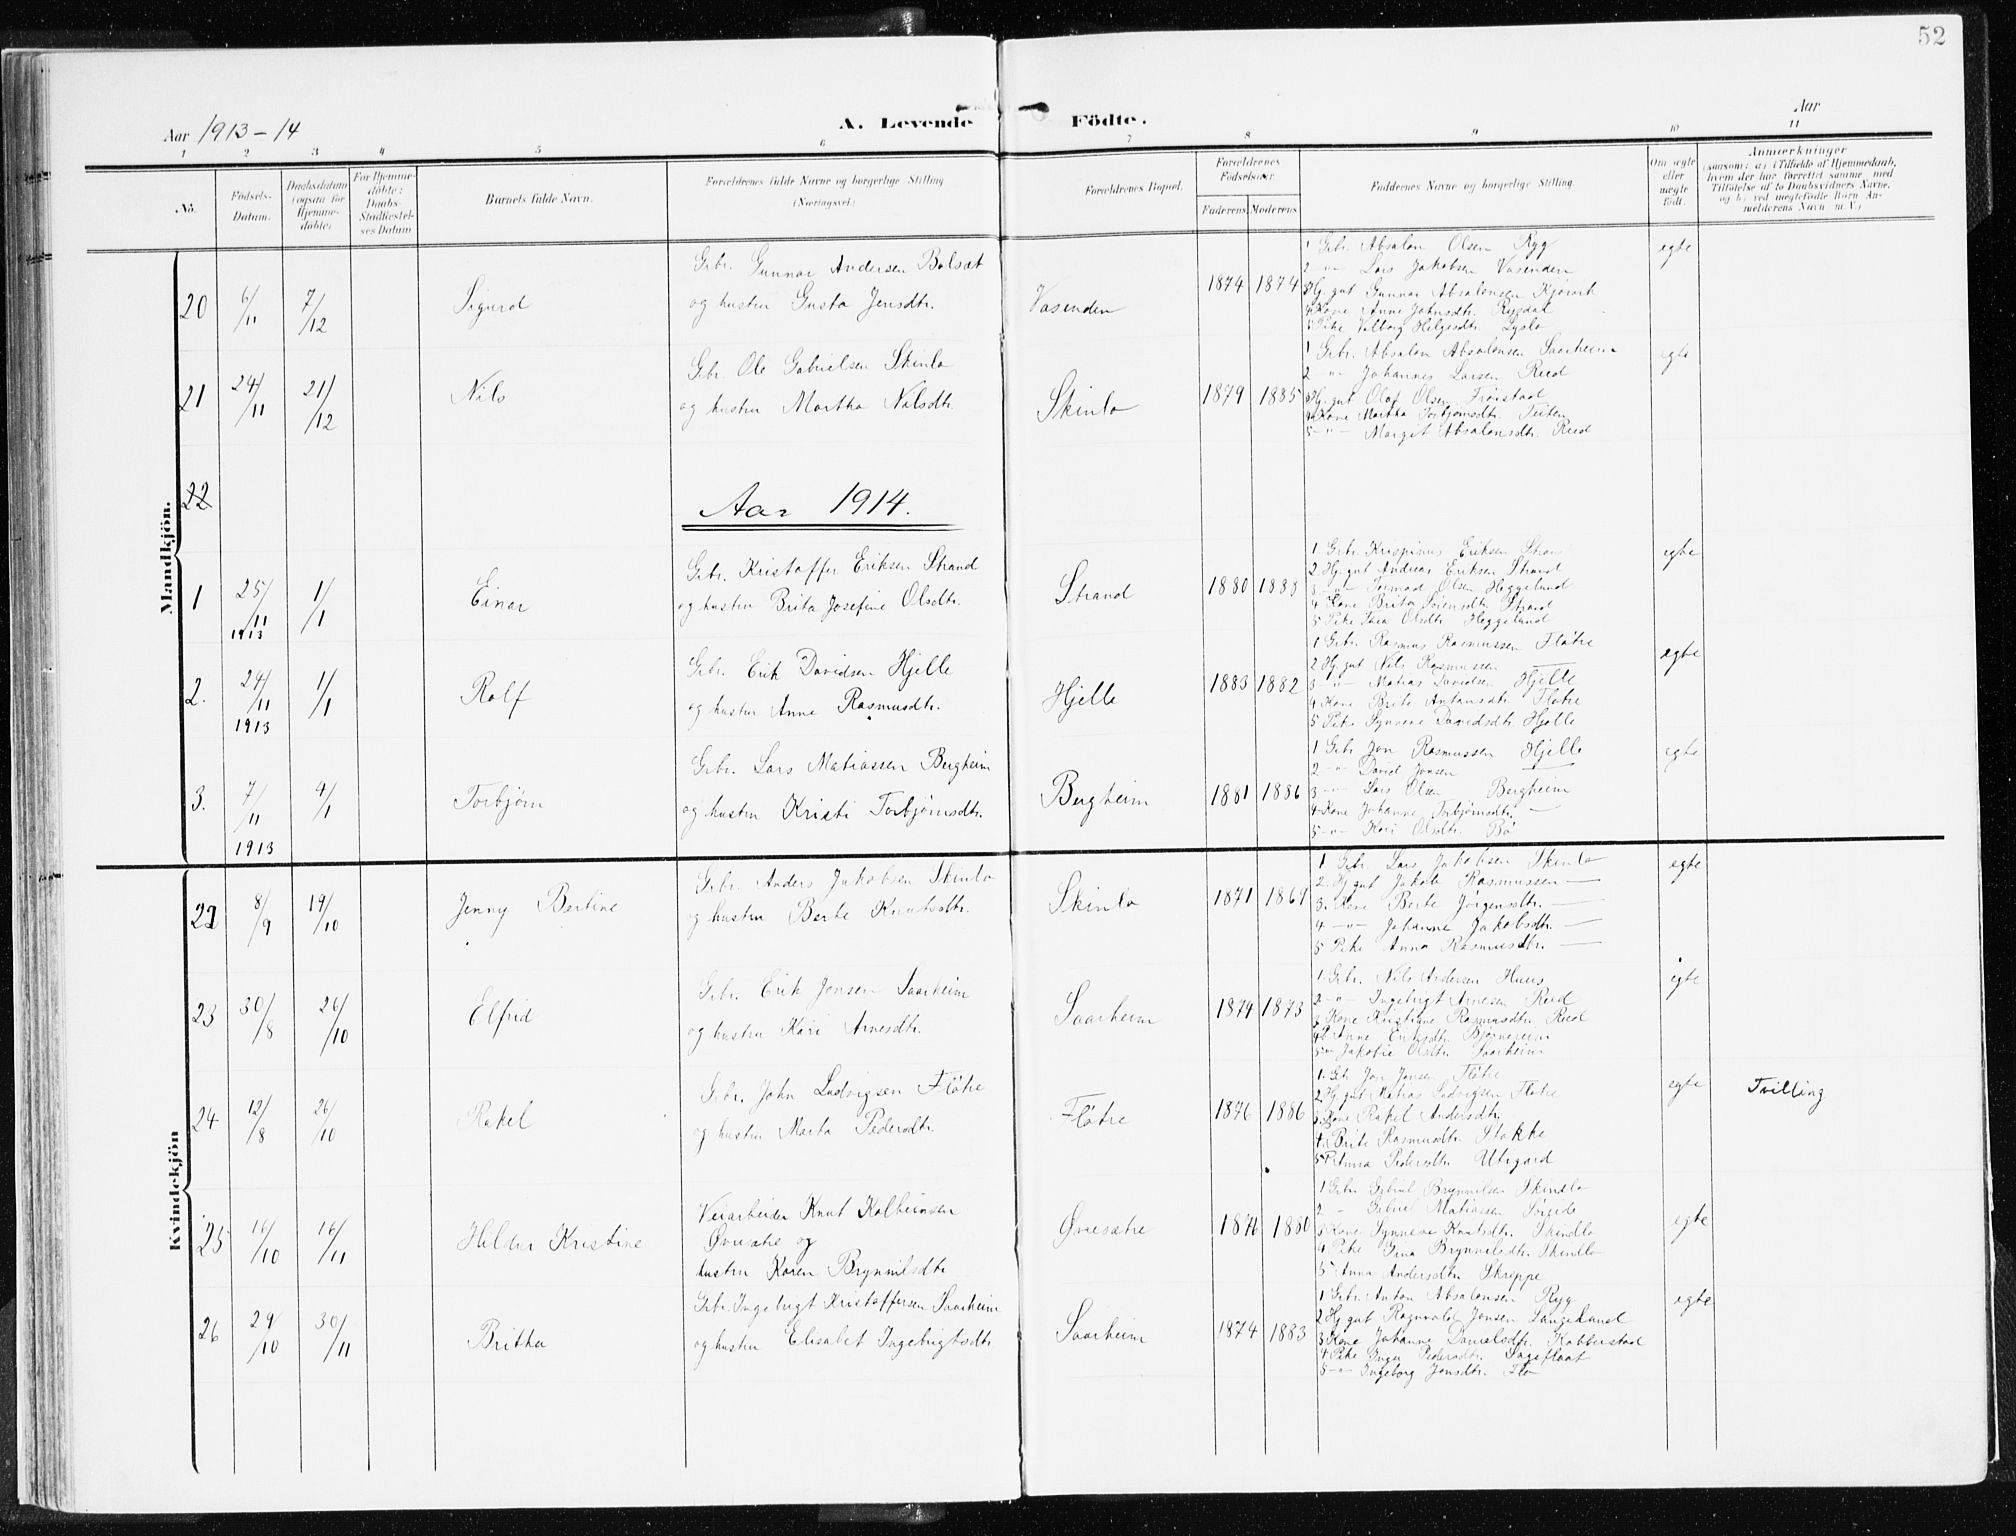 52
Aar 1913-14
A. Levende Födte.
Aar
1 2 3 4 5 6 7 8 9 10 11
No.
Födsels-Datum.
Daabsdatum (ogsaa for Hjemme-döbte)
For Hjemme-döbte: Daabs-Stadfæstel-ses Datum
Barnets fulde Navn.
Forældrenes fulde Navne og borgerlige Stilling (Næringsvei.)
Forældrenes Bopæl.
Forældrenes Födselsaar
Faderens. Moderens.
Faddernes Navne og borgerlige Stilling.
Om ægte eller uægte födt.
Anmærkninger
(saasom: a) i Tilfælde af Hjemmedaab, hvem der har forrettet samme med Tilföielse af to Daabsvidners Navne, og b) ved uægtefödte Börn An-melderens Navn m. V.)
Mandkjön.
20 6/11 7/12 Sigurd
Gbr. Gunnar Andersen Bolsæt
og hustru Gusta Jensdtr.
Vasenden 1874 1874
1 Gbr. Absalon Olsen Ryg
2 -"- Lars Jakobsen Vasenden
3 Hj. gut Gunnar Absalonsen
4 Kone Anne Johnsdtr. Rygdal
5 Pike Valborg Helgesdtr. Lyslo
egte
21 24/11 21/12 Nils
Gbr. Ole Gabrielsen Skinlo
og hustru Martha Nilsdtr.
Skinlo 1879 1885
1 Gbr. Absalon Absalonsen Saarheim
2 -"- Johannes Larsen Reed
3 Hj. gut Olaf Olsen
4 Kone Martha Torbjørnsdtr.
5 -"- Margit Absalonsdtr. Reed
egte
22
Aar 1914.
1 25/11 1913 1/1 Einar
Gbr. Kristoffer Eriksen Strand
og hustru Brita Josefine Olsdtr.
Strand 1880 1888
1. Gbr. Krispinus Eriksen Strand
2 Hj. gut Andreas Eriksen Strand
3 -"- Tormod Olsen Heggelund
4 Kone Brita Strand
5 Pike Thea Olsdtr. Heggelund
egte
2. 24/11 1913 1/1 Rolf
Gbr. Erik Davidsen Hjelle
og hustru Anne Rasmusdtr.
Hjelle 1883 1882
1 Gbr. Rasmus Rasmussen Fløtre
2 Hj. gut Nils Rasmussen —
3 -"- Matias Davidsen Hjelle
4 Kone Brite Antonsdtr. Fløtre
5 Pike Synneve Davidsdtr. Hjelle
egte
3. 7/11 1913 4/1 Torbjørn
Gbr. Lars Matiassen Bergheim
og hustru Kristi Torbjørnsdtr.
Bergheim 1881 1886
1 Gbr. Jon Rasmussen Hjelle
2 -"- David Jonsen —
3 -"- Lars Olsen Bergheim
4 Kone Johanne Torbjørnsdtr. —
5 -"- Kari Olsdtr. Bø
egte
Kvindekjön
22 8/9 19/10 Jenny Bertine
Gbr. Anders Jakobsen Skinlo
og hustru Berte Knutsdtr.
Skinlo 1871 1869
1 Gbr. Lars Jakobsen Skinlo
2. Hj. gut Jakob Rasmussen —
3. Kone Berte Jörgensdtr. —
4 -"- Johanne Jakobsdtr. —
5 Pike Anna Rasmusdtr. —
egte
23 30/8 26/10 Elfrid
Gbr. Erik Jonsen Saarheim
og hustru Kari Arnesdtr.
Saarheim 1874 1873
1 Gbr. Nils Andersen Huus
2 -"- Ingebrigt Arnesen Reed
3 Kone Kristiane Rasmusdtr. Reed
4 P. Anne Eriksdtr. Bjørnereim
5 -"- Jakobie Olsdtr. Saarheim
egte
24 12/8 26/10 Rakel
Gbr. John Ludvigsen Fløtre
og hustru Marta Pedersdtr.
Fløtre 1876 1886
1. Gbr. Jon Jonsen Fløtre
2 Hj. gut Matias Ludvigsen Fløtre
3. Kone Rakel Andersdtr.
4. Brite Rasmusdtr. Stokke
5 P. Anna Pedersdtr. Utigard
egte
Tvilling
25 16/10 16/11 Hilda Kristine
Veiarbeider Knut Kolbeinsen
Øvresætre og
hustru Karen Brynnilsdtr
Øvresætre 1876 1880
1 Gbr. Gabriel Brynnilsen Skindlo
2 - Gabriel Matiassen
3 Kone Synneve Knutsdtr. Skindlo
4 Pike Gina Brynnilsdtr. Skindlo
5 Anna Andersdtr. Skreppe
egte
26 29/10 30/11 Britha
Gbr. Ingebrigt Kristoffersen Saarheim
og hustru Elisabet Ingebrigtsdtr
Saarheim 1874 1883
1 Gbr. Anton Absalonsen Ryg
2 Hj. gut Ragnvald Jonsen Langeland
3 Kone Johanne Danielsdtr. Kobberstad
4 Pike Inger Pedersdtr. Sageflaat
5 -"- Ingeborg Jonsdtr. Flo
egte